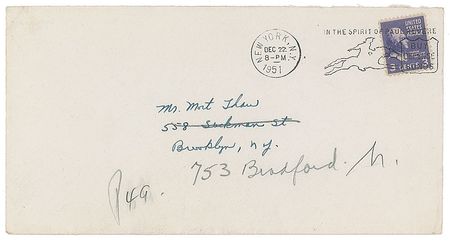 NEW YORK, N.Y.
DEC 22
8-PM
1951
IN THE SPIRIT OF PAUL REVERE
BUY
UNITED STATES
3 CENTS 3
Mr. Mort Thaw
558
St
Brooklyn, N.Y.
753 Bradford. N.